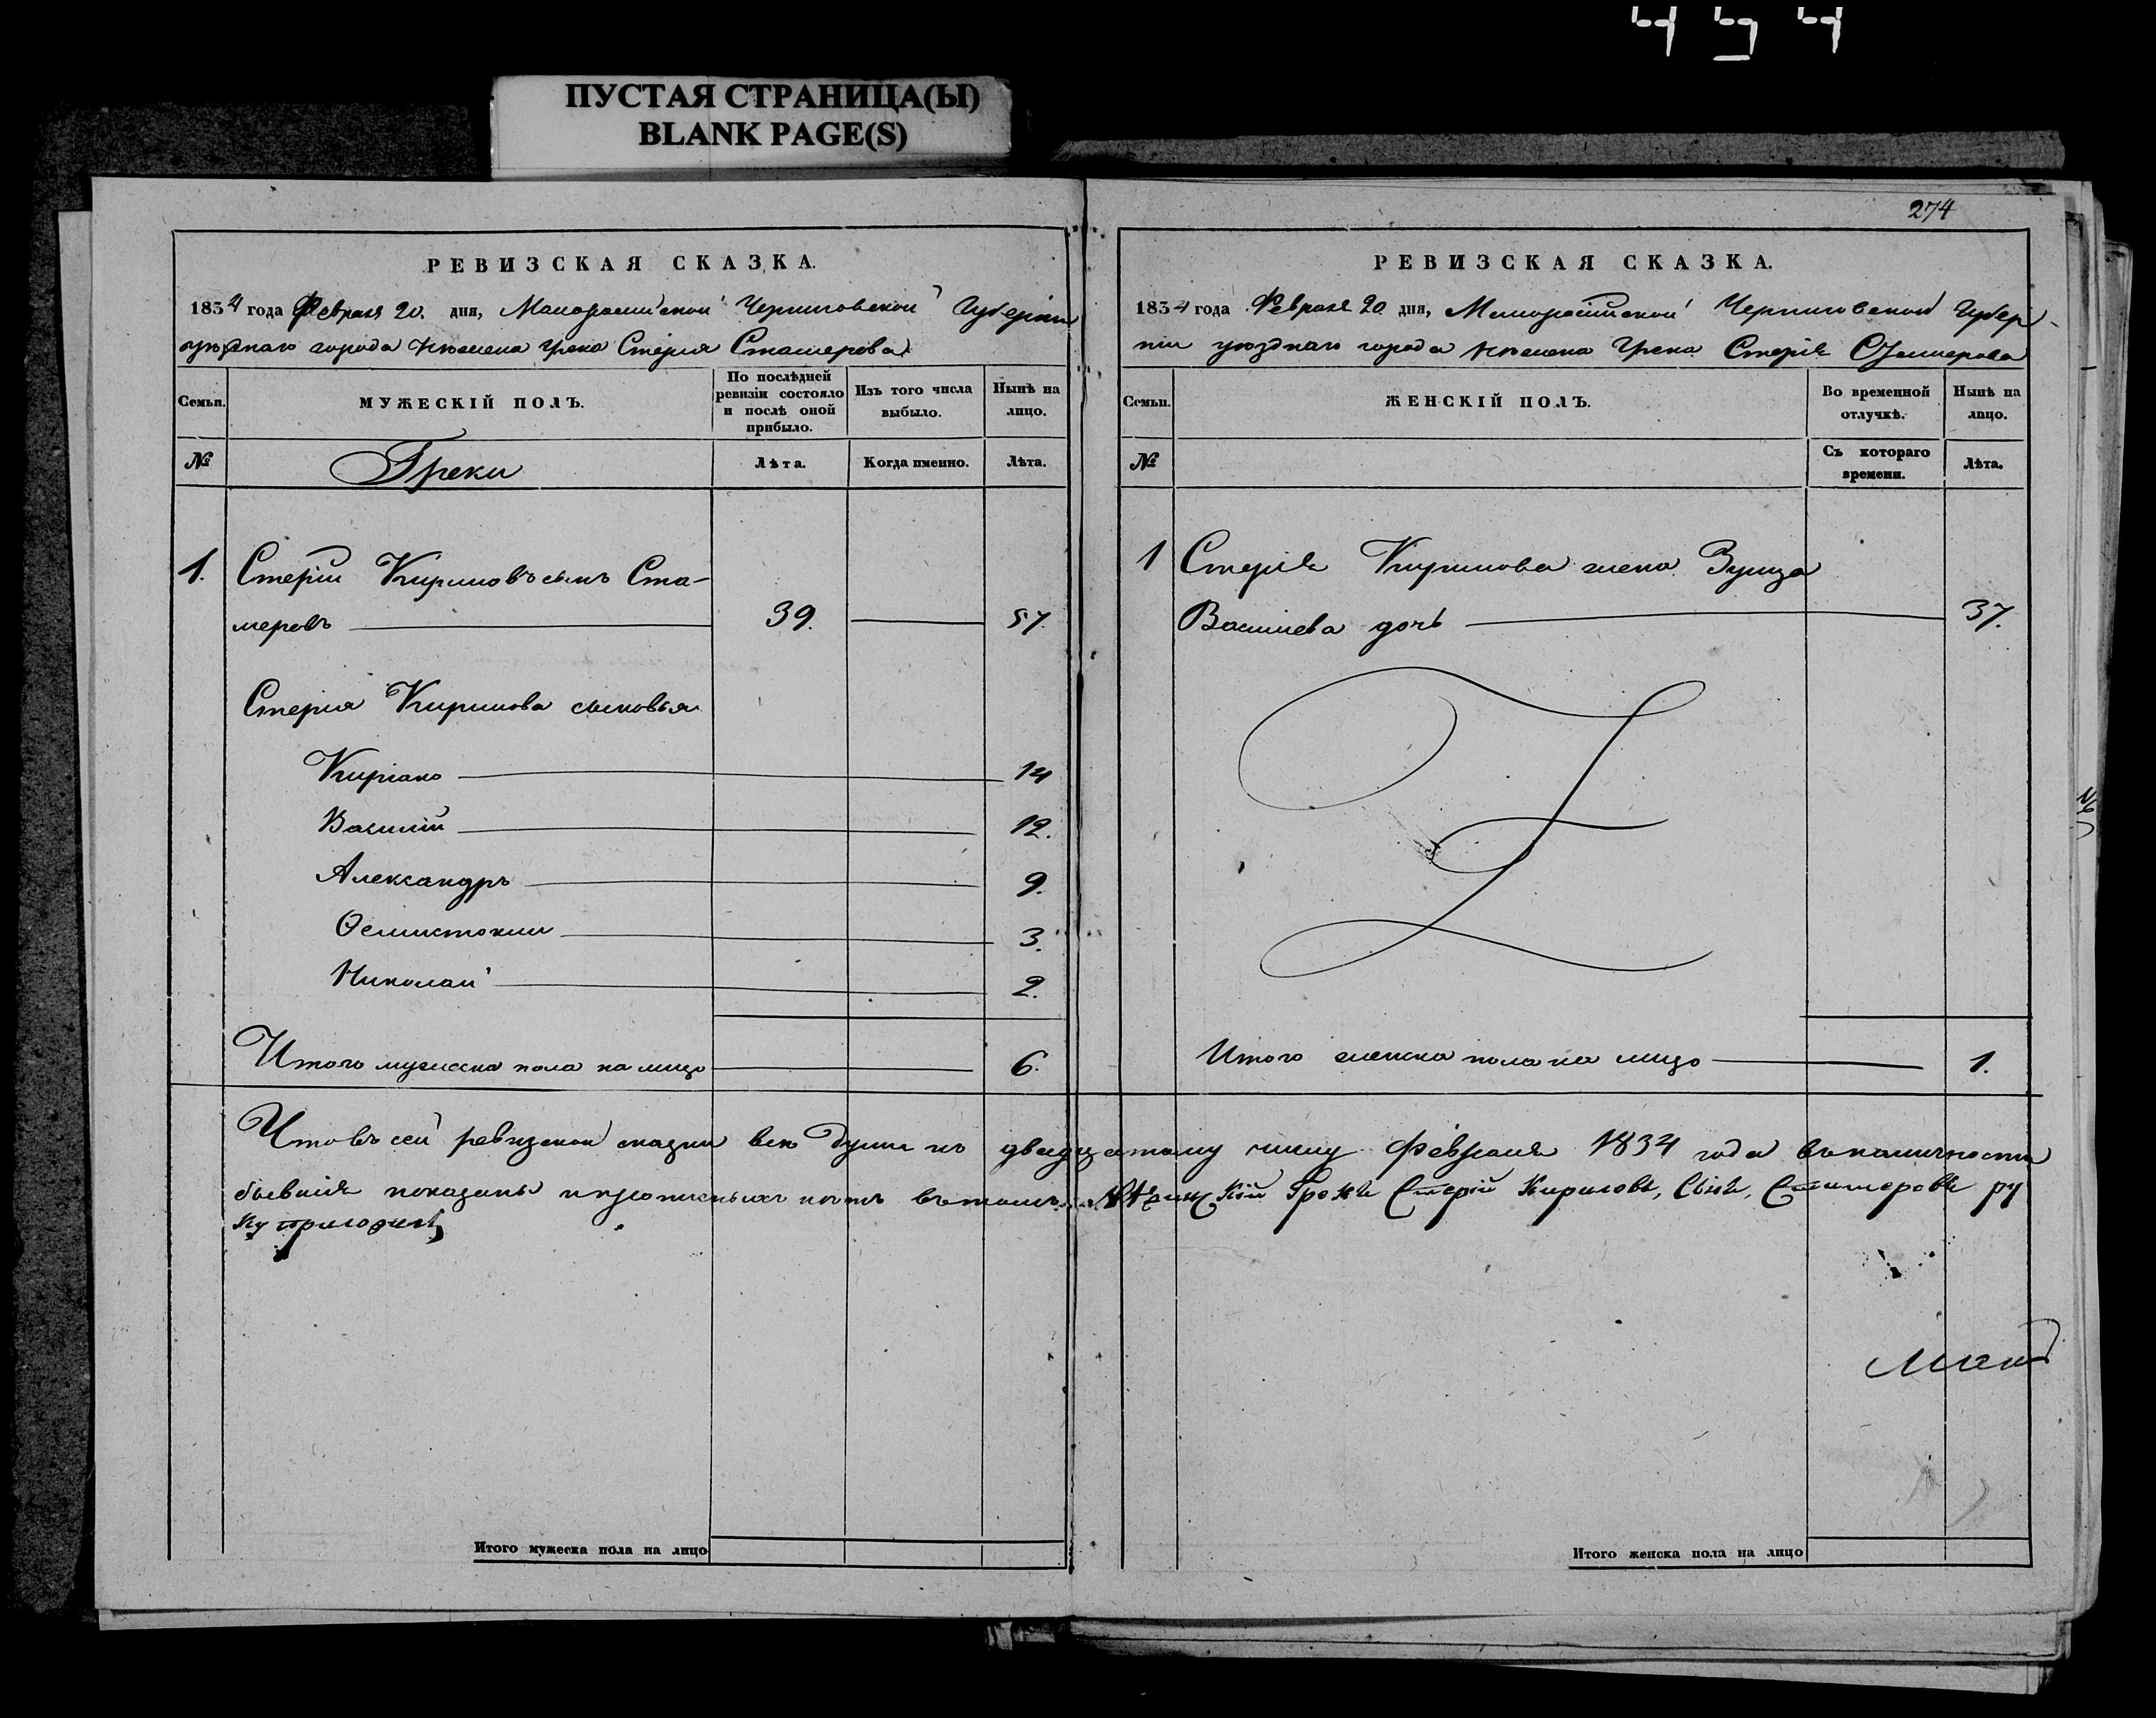 ПУСТАЯ СТРАНИЦА(Ы)
BLANK PAGE(S)
РЕВИЗСКАЯ СКАЗКА.
1834 года Февраля 20. дня, Малороссійской Черниговской Губерніи
уѣзднаго города Нѣжена Грека Стерія Стамерова
Семьи.
МУЖЕСКІЙ ПОЛЪ.
По послѣдней
ревизіи состояло
и послѣ оной
прибыло.
Изъ того числа
выбыло.
Нынѣ на
лицо.
№
Греки
Лѣта.
Когда именно.
Лѣта.
1. Стерій Кириловъ сынъ Ста-
меровъ 39. 57.
Стерія Кирилова сыновья
Киріако 14
Василій 12.
Александръ 9.
Ѳемистокли 3.
Николай 2.
Итого мужеска пола на лицо 6.
Итого мужеска пола на лицо
274
РЕВИЗСКАЯ СКАЗКА.
1834 года Февраля 20 дня, Малороссійской Черниговской Губер-
ніи уѣзднаго города Нѣжена Грека Стерія Стамерова
Семьи.
ЖЕНСКІЙ ПОЛЪ.
Во временной
отлучкѣ.
Нынѣ на
лицо.
№
Съ котораго
времени.
Лѣта.
1 Стерія Кирилова жена Зуица
Васильева дочь 37.
Итого женска пола на лицо 1.
Что въ сей ревизской сказки всѣ души къ двадцатому числу Февраля 1834 года въ наличности
бывшія показаны и прописныхъ нѣтъ въ томъ Грекъ Стерій Кириловъ, Сынъ, Стамеровъ ру
ку приложилъ
Итого женска пола на лицо